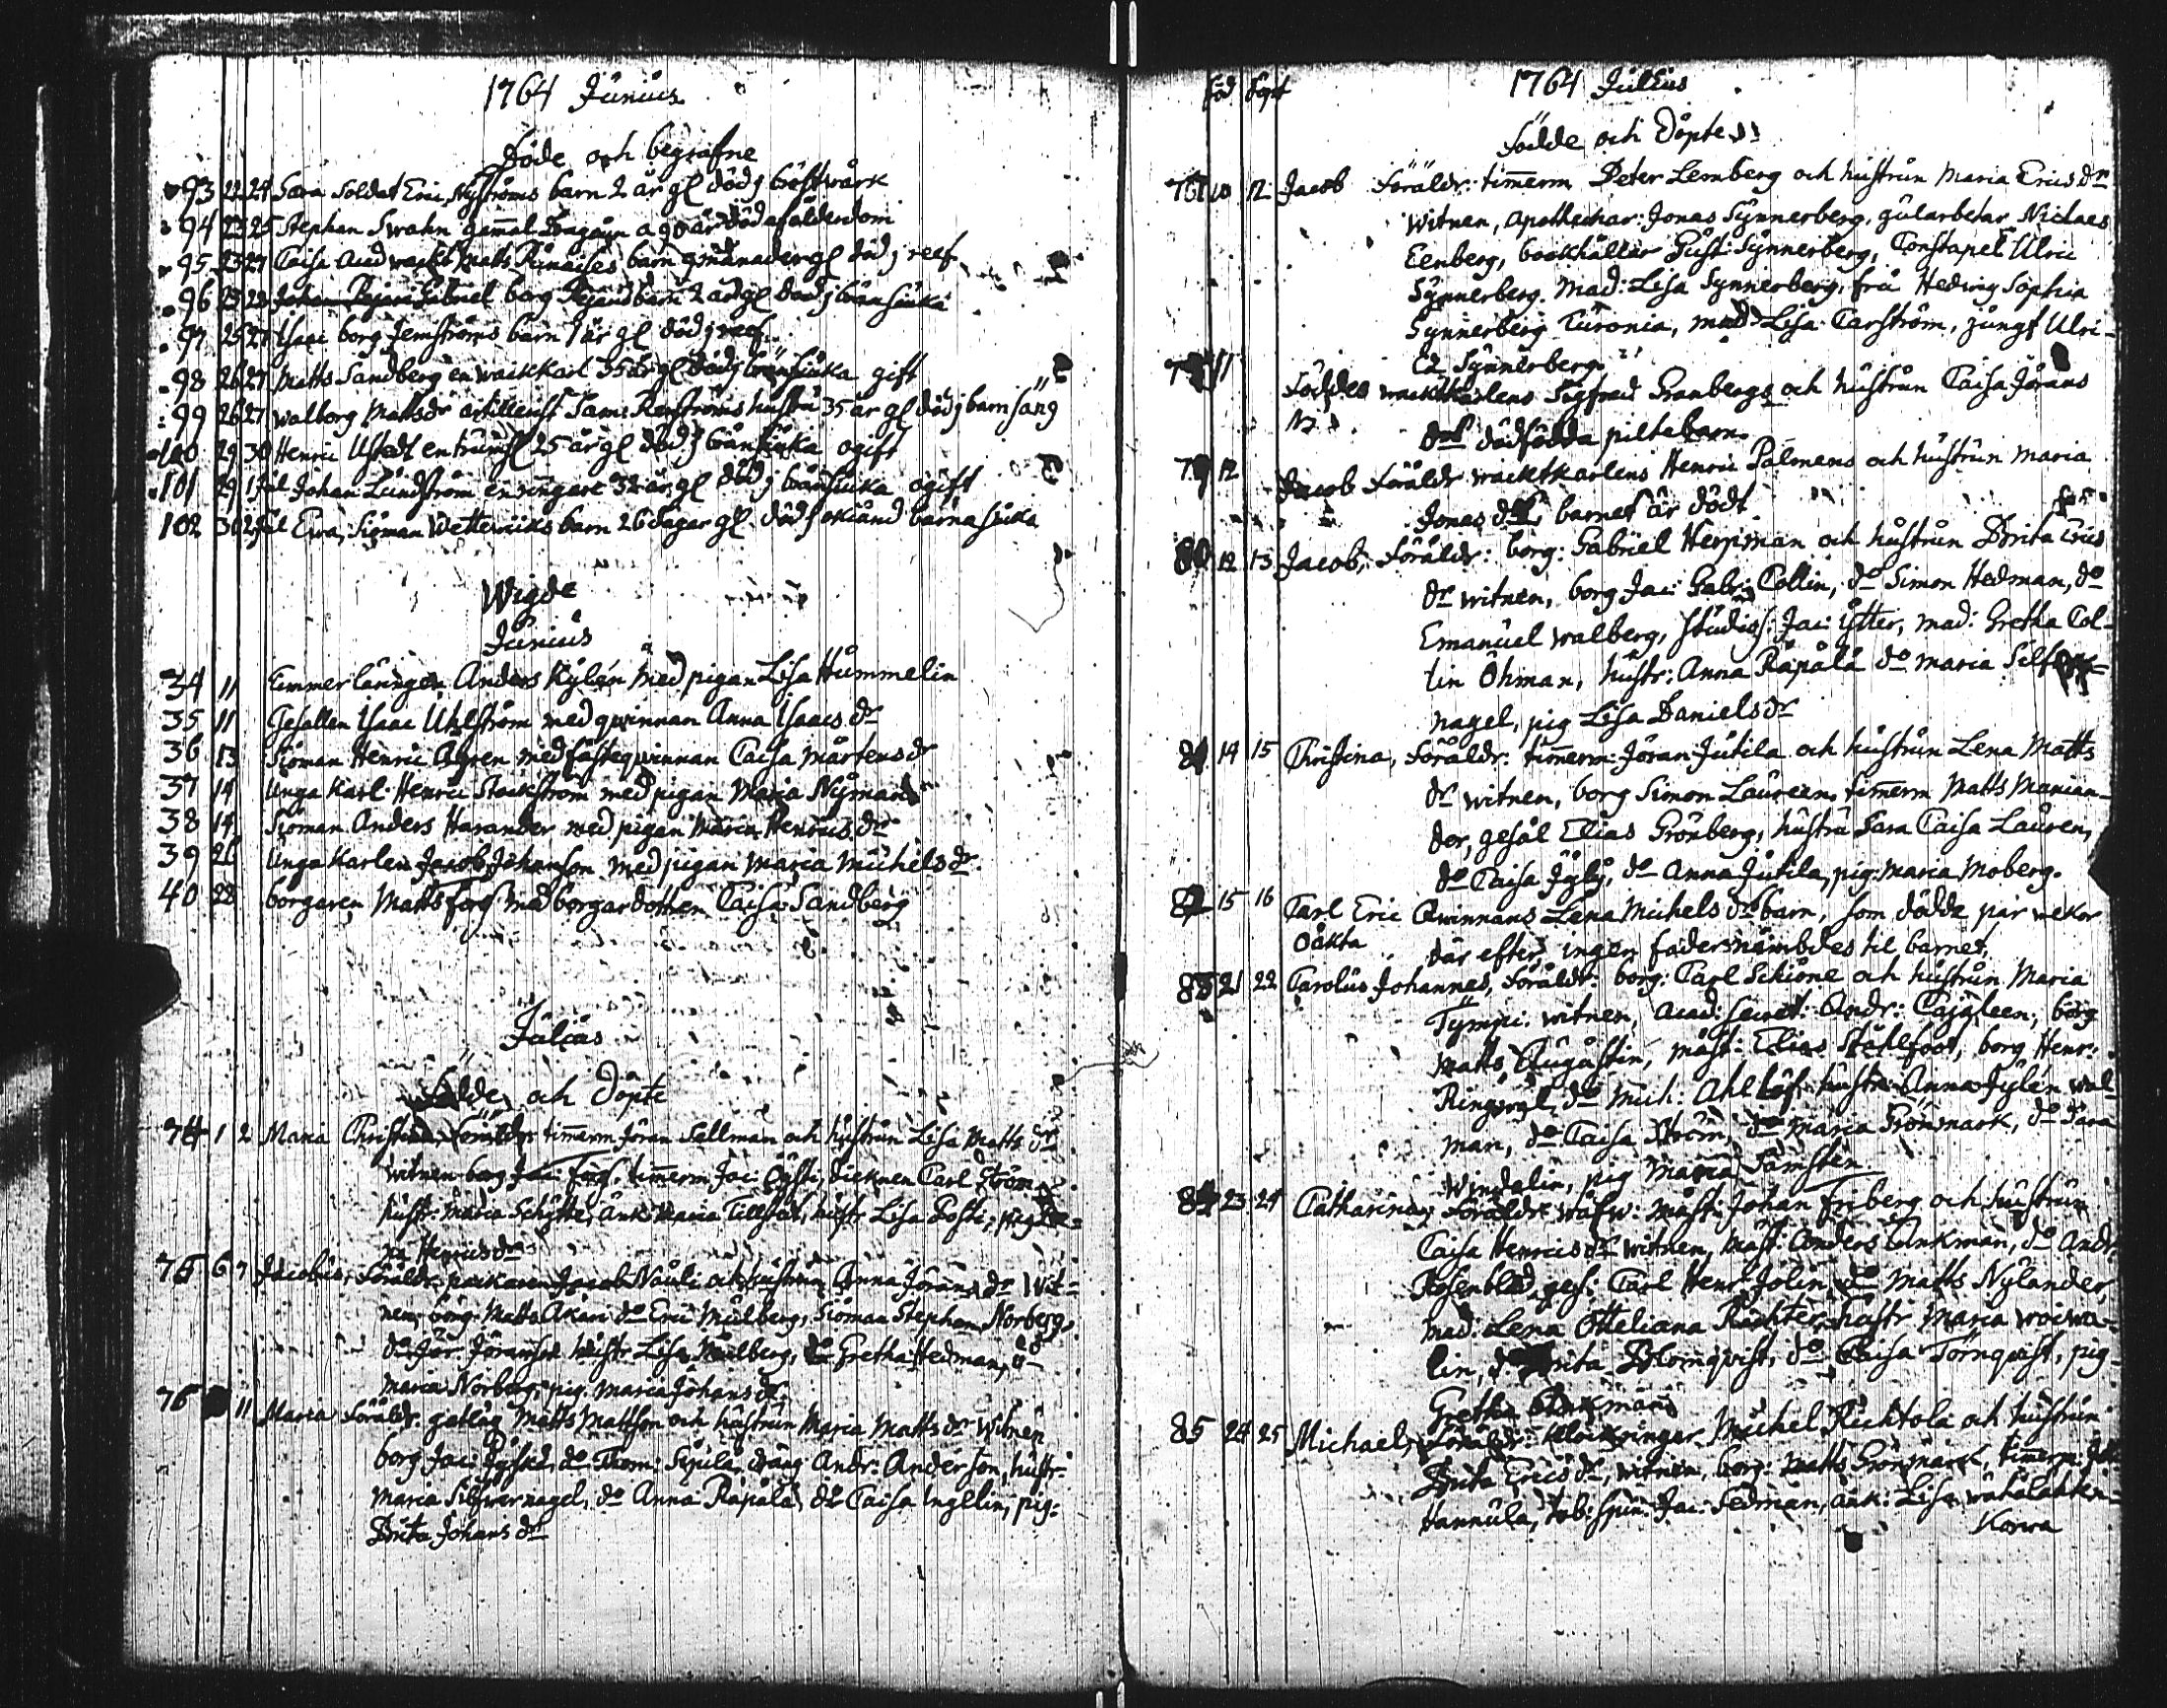 1764 Junius
Döde och begrafne
93 22 24 Sara Soldat Eric Nyströms barn 2 år gl död j bröstwärk
94 23 25 Stephan Swahn gamal Dragoun a 90 år död af ålderdom
95 23 27 Caisa Acad wackt Matts barn 9 månader gl död j reef
96 23 28 Gabriel borg barn 2 år gl död j bränsiuka
97 25 27 Isaac borg Jemströms barn 1 år gl död j reef
98 26 27 Matts Sandberg en wacktkarl 35 år gl död j bränsiuka gift
99 26 27 Walborg Mattsdr artillerist Sam: Renströms hustru 35 år gl död j barnsäng
100 29 30 Henric Ustedt en trumsl 25 år gl död j bränsiuka ogift
101 29 1 Jul Johan Lundström en ringare 32 år gl död j bränsiuka ogift
102 30 2 Jul Ewa, Siöman Wetterwiks barn 26 dagar gl död j okiänd barnasiuka
Wigde
Junius
34 11 Anders Kylén med pigan Lisa Hummelin
35 11 Gesällen Isaac Uhlström med qwinnan Anna Isaacs dr
36 13 Siöman Henric Ahgren med fästeqwinnan Caisa Mårtens dr
37 14 Unga Karl Henric Stockström med pigan Maria Nyman
38 14 Siöman Anders Harander med pigan Maria Henrics dr
39 21 Unga Karlen Jacob Johanson med pigan Maria Michels dr
40 28 borgaren Matts fors med borgardotren Caisa Sandberg
Julius
Födde och Döpte
74 1 2 Maria Christina, Föräldr timerm Jöran Sallman och hustrun Lisa Matts dr
witnen borg Jac: fors, timerm Jac: Öysti, dieknen Carl Ström
hustr: Maria Schytte, änk Maria hustr Lisa Posti, pig Le-
na Henrics dr
75 6 7 Jacobus, Föräldr, packaren Jacob Nauli och hustrun Anna Jörans dr Wit-
nen, borg. Matts Akan do Eric Mulberg, Siöman Stephan Norberg,
do Jör. Jöranson hustr Lisa Mulberg, do Gretha Hedman, do
Maria Norberg, pig. Maria Johans dr
76 11 Maria Föräldr. Matts Mattson och hustrun Maria Matts dr Witnen
borg Jac: do Thom: Sipilä, dräng Andr: Anderson, hustr:
Maria Silfwernagel, do Anna Rapala, do Caisa Ingelin, pig:
Brita Johans dr
föd döpt 1764 Julius
Födde och Döpte
77 10 12 Jacob Föräldr: timerm Peter Lemberg och hustrun Maria Erics dr
Witnen, Apothechar: Jonas Synnerberg, gularbetar Niclaes
Eenberg, bookhållar Gust: Synnerberg, Constapel Ulric
Synnerberg. Mad: Lisa Synnerberg, fru Hedvig Sophia
Synnerberg Curonia, mad Lisa Carström, jungf Ulri-
ca Synnerberg.
11 Föddes wacktkarlens Sigfred Granbergs och hustrun Caisa Jörans
drs dödfödda piltebarn.
79 12 Jacob Föräldr wacktkarlens Henric Palmens och hustrun Maria
Jonas drs, barnet är dödt
80 12 13 Jacob, Föräldr: borg: Gabriel Herpman och hustrun Brita Erics
dr witnen, borg Jac: Gabr: Collin, do Simon Hedman, do
Emanuel Walberg, Studios: Jac: Ytter, mad: Gretha Col-
lin Öhman, hustr: Anna Rapala do Maria Silfwer-
nagel, pig Lisa Daniels dr
81 14 15 Christina, Föräldr: timerm: Jöran Jutila och hustrun Lena Matts
dr witnen, borg Simon Laureen, timerm Matts Manian-
der, gesäl Elias Grönberg, hustru Sara Caisa Lauren,
do Caisa do Anna Jutila, pig: Maria Moberg.
82 15 16 Carl Eric Qwinnans Lena Michels dr barn, som dödde par wekor
Oäkta där efter, ingen fader nämbdes til barnet.
83 21 22 Carolus Johannes, Föräldr: borg: Carl Schöne och hustrun Maria
Tympi: witnen, Acad: Secret: Andr: Cajaleen, borg
Matts Augustin, mäst: Elias Stählfoot, borg Henr:
do Mich: Ahllöf, hustr: Anna Jylén Wal
man, do Caisa Ström, do Maria Grönmark, do Sara
Windelin, pig Maria Samsten
84 23 24 Catharina, Föräldr wäfw: mäst: Johan Friberg och hustrun
Caisa Henrics dr witnen, mäst: Anders Ankman, do Andr:
Rosenblad, ges: Carl Henr: Jolin, do Matts Nylander,
mad: Lena Otteliana Richter, hustr Maria woiwa-
lin, do Brita Blomqwist, do Caisa Törnqwist, pig
Gretha Ankman
85 24 25 Michael, Föräldr: klockringar Michel Ruchtola och hustrun
Brita Erics dr, witnen, borg: Matts Grönmarck, timerm:
Hannula, tob: spin: Jac: Sedman, änk: Lisa wähälahten-
Korwa